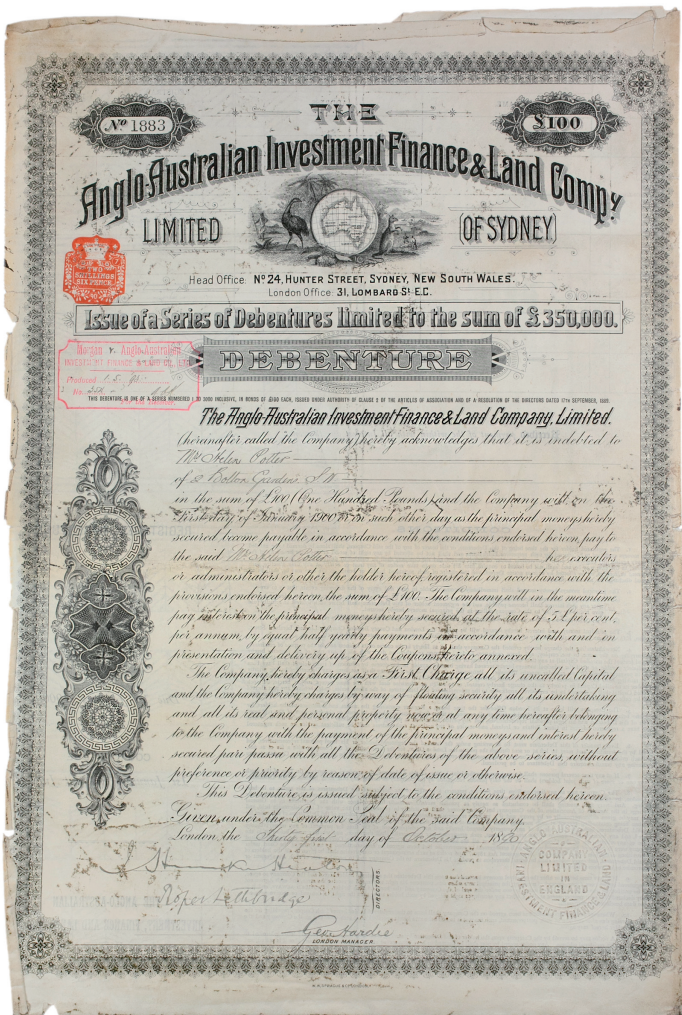 No 1883
THE
£100
Anglo-Australian Investment Finance & Land Compy
LIMITED (OF SYDNEY)
TWO
SHILLINGS
SIX PENCE
Head Office: No 24, HUNTER STREET, SYDNEY, NEW SOUTH WALES.
London Office: 31, LOMBARD St E.C.
Issue of a Series of Debentures limited to the sum of £350,000.
Morgan v. Anglo-Australian
INVESTMENT FINANCE & LAND CO. LTD
Produced
DEBENTURE
THIS DEBENTURE IS ONE OF A SERIES NUMBERED 1 TO 3000 INCLUSIVE, IN BONDS OF £100 EACH, ISSUED UNDER AUTHORITY OF CLAUSE 2 OF THE ARTICLES OF ASSOCIATION AND OF A RESOLUTION OF THE DIRECTORS DATED 17TH SEPTEMBER, 1889.
The Anglo-Australian Investment Finance & Land Company, Limited.
(hereinafter called the Company) hereby acknowledges that it is indebted to
Helen Potter
of 2 Bolton Gardens S.W.
in the sum of £100 (One Hundred Pounds) and the Company will on the
First day of January 1900 or on such other day as the principal moneys hereby
secured become payable in accordance with the conditions endorsed hereon, pay to
the said Helen Potter he executors
or administrators or other the holder hereof registered in accordance with the
provisions endorsed hereon, the sum of £100. The Company will in the meantime
pay interest on the principal moneys hereby secured at the rate of per cent.
per annum, by equal half yearly payments in accordance with and on
presentation and delivery up of the Coupons hereto annexed.
The Company hereby charges as a First Charge all its uncalled Capital
and the Company hereby charges by way of floating security all its undertaking
and all its real and personal property now or at any time hereafter belonging
to the Company with the payment of the principal moneys and interest hereby
secured pari passu with all the Debentures of the above series, without
preference or priority by reason of date of issue or otherwise.
This Debenture is issued subject to the conditions endorsed hereon.
Given under the Common Seal of the said Company.
London, the Thirty first day of October 1890
Roper Lethbridge
DIRECTORS
Geo Hardie
LONDON MANAGER.
ANGLO-AUSTRALIAN
INVESTMENT FINANCE & LAND
COMPANY
LIMITED
IN
ENGLAND